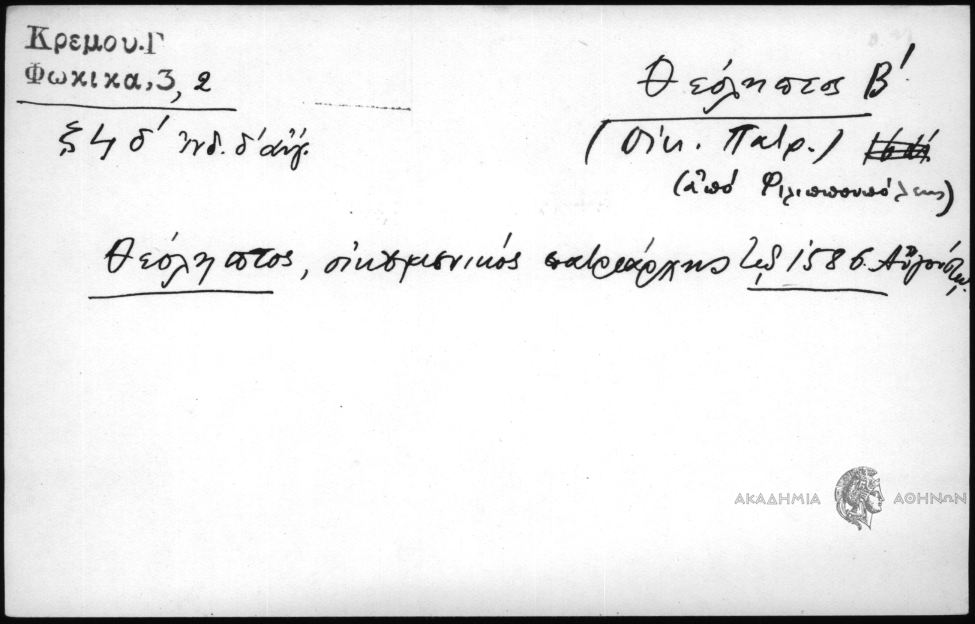 Κρεμου.Γ
Φωκικα,3,2
ξϟδ΄ ἰνδ. δ΄ αὐγ.
Θεόληπτος Β΄
(Οἰκ. Πατρ.)
(ἀπό Φιλιππουπόλεως)
Θεόληπτος, οἰκουμενικός πατριάρχης τῷ 1586. Αὐγούστῳ.
ΑΚΑΔΗΜΙΑ ΑΘΗΝΩΝ